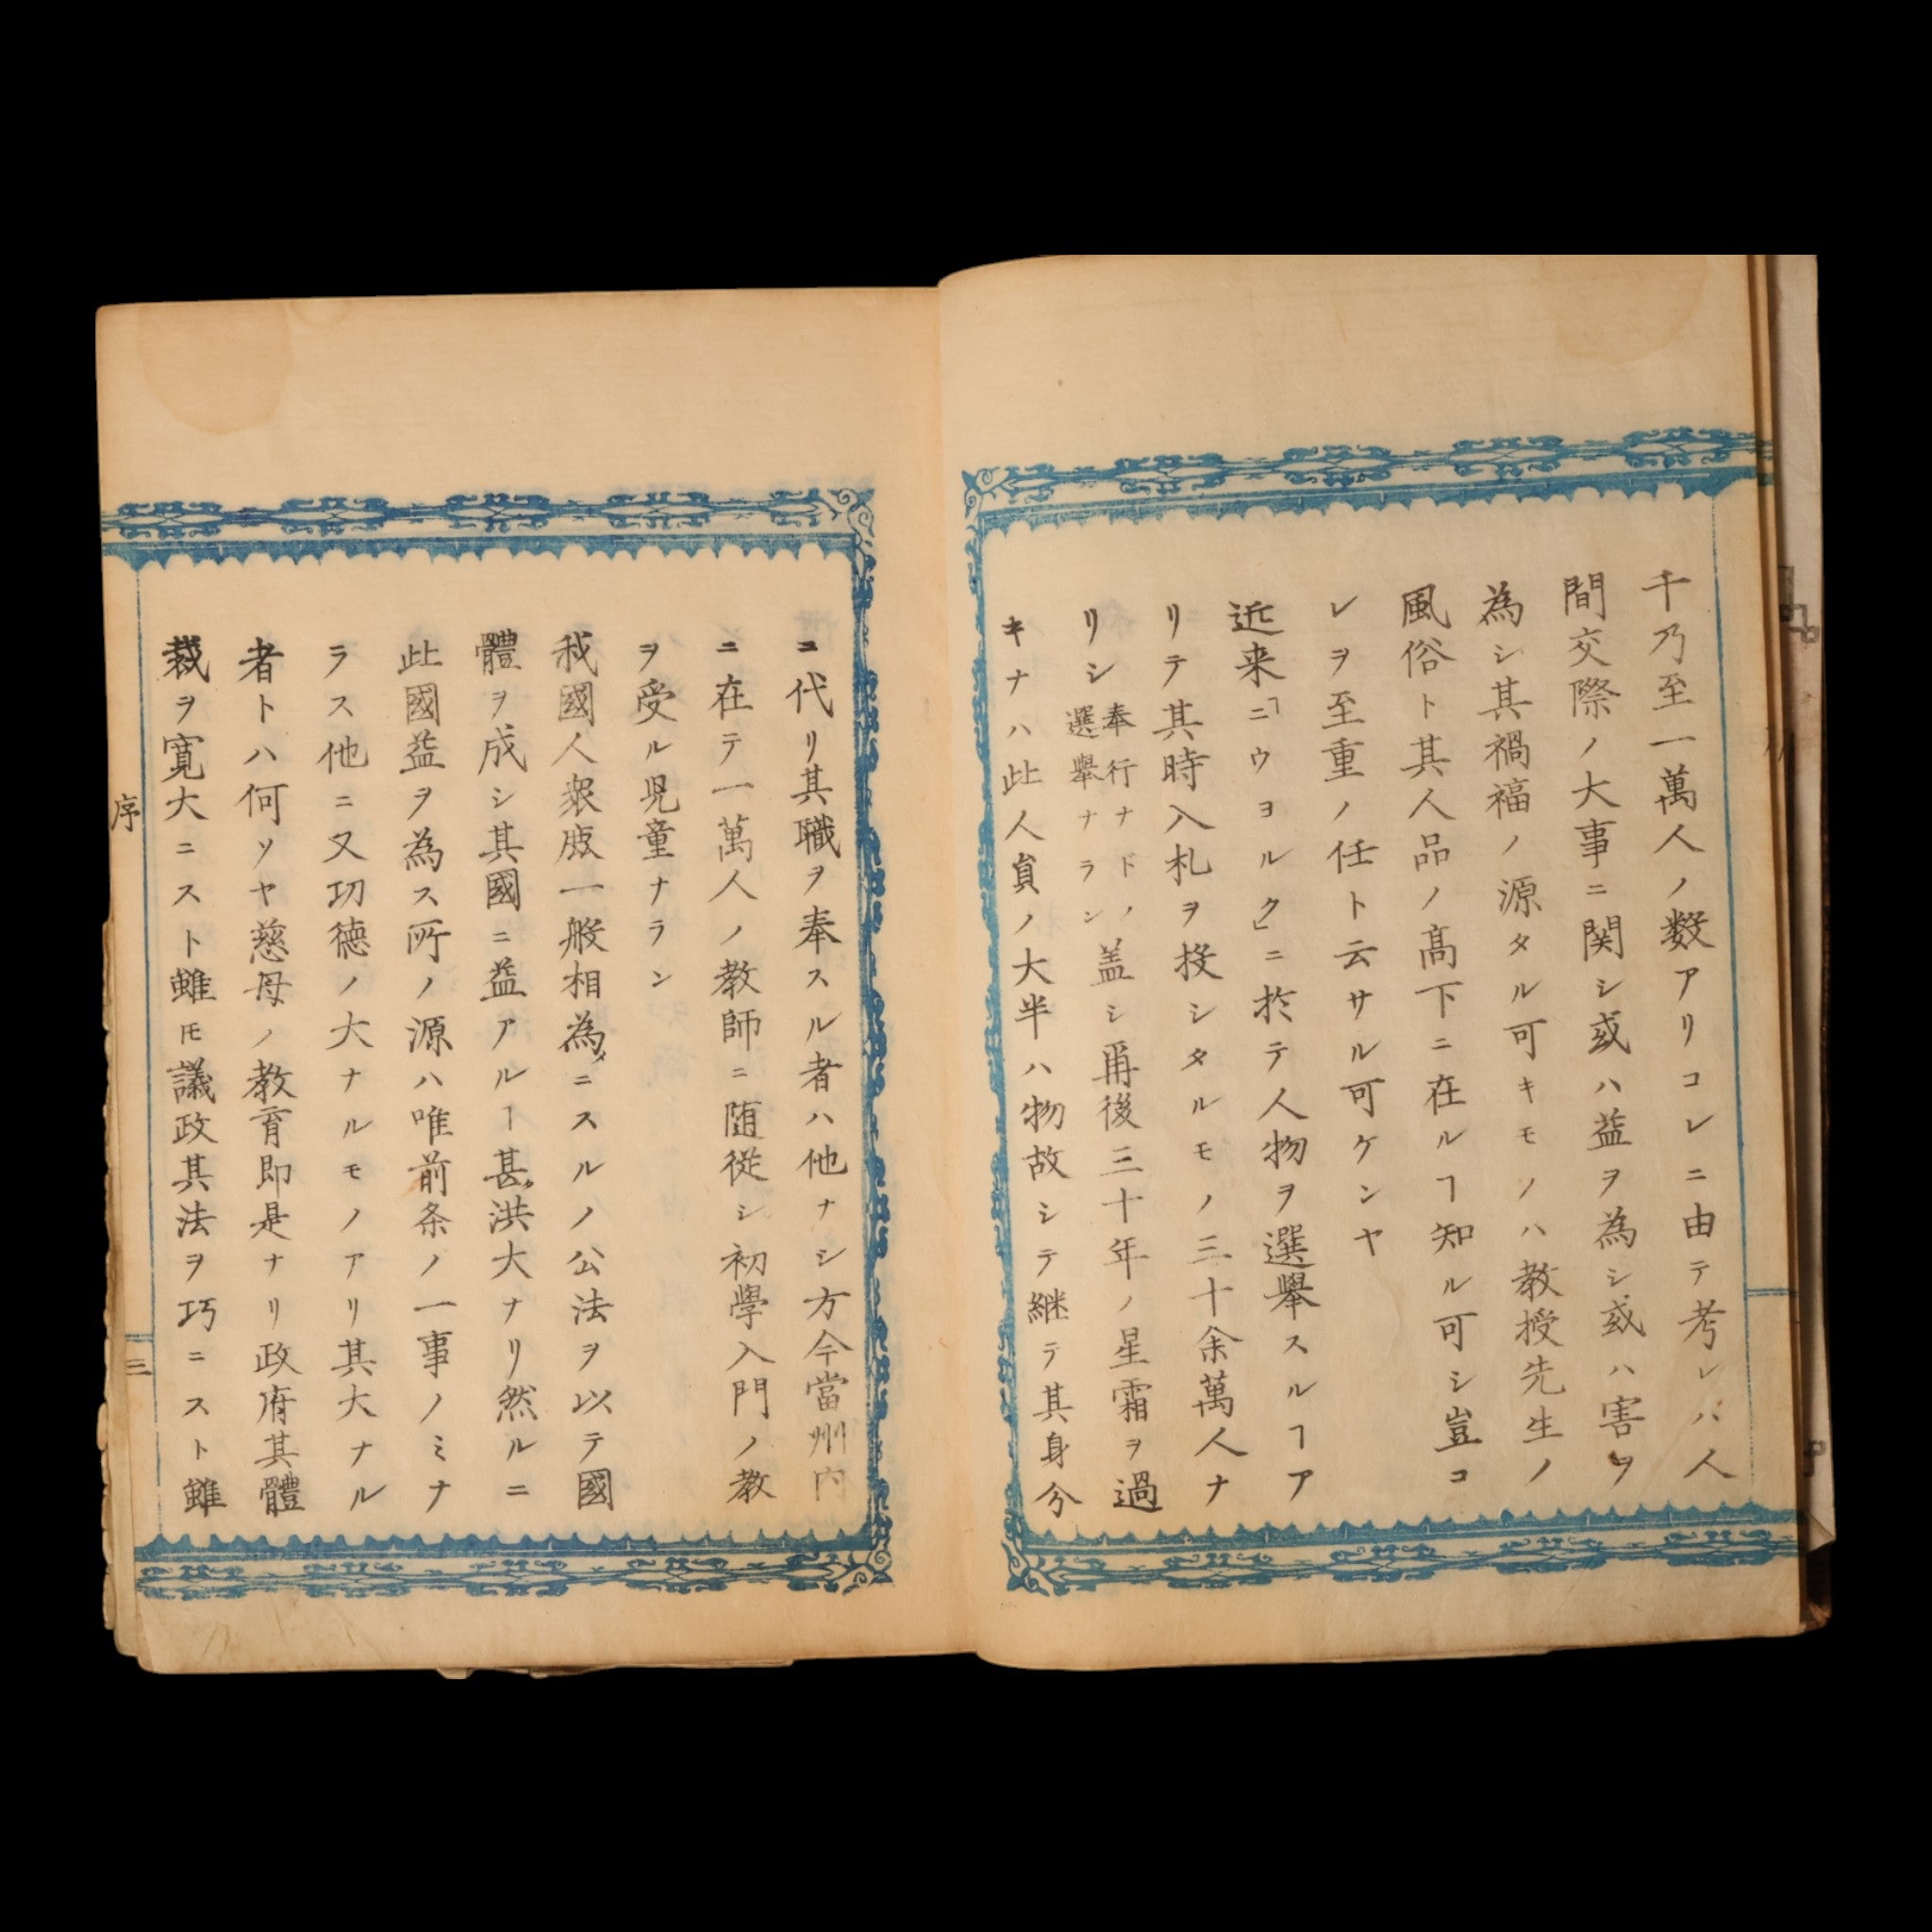 千乃至一萬人ノ数アリコレニ由テ考レハ人
間交際ノ大事ニ関シ或ハ益ヲ為シ或ハ害ヲ
為シ其禍福ノ源タル可キモノハ教授先生ノ
風俗ト其人品ノ髙下ニ在ルヿ知ル可シ豈コ
レヲ至重ノ任ト云サル可ケンヤ
近来「ニウヨルク」ニ於テ人物ヲ選舉スルヿア
リテ其時入札ヲ投シタルモノ三十余萬人ナ
リシ奉行ナドノ選舉ナラン盖シ爾後三十年ノ星霜ヲ過
キナハ此人員ノ大半ハ物故シテ継テ其身分
ニ代リ其職ヲ奉スル者ハ他ナシ方今當州内
ニ在テ一萬人ノ教師ニ随従シ初學入門ノ教
ヲ受ル児童ナラン
我國人衆庶一般相為ニスルノ公法ヲ以テ國
體ヲ成シ其國ニ益アルヿ甚洪大ナリ然ルニ
此國益ヲ為ス所ノ源ハ唯前条ノ一事ノミナ
ラス他ニ又功德ノ大ナルモノアリ其大ナル
者トハ何ソヤ慈母ノ教育即是ナリ政府其體
裁ヲ寛大ニスト雖𪜈議政其法ヲ巧ニスト雖
序
三